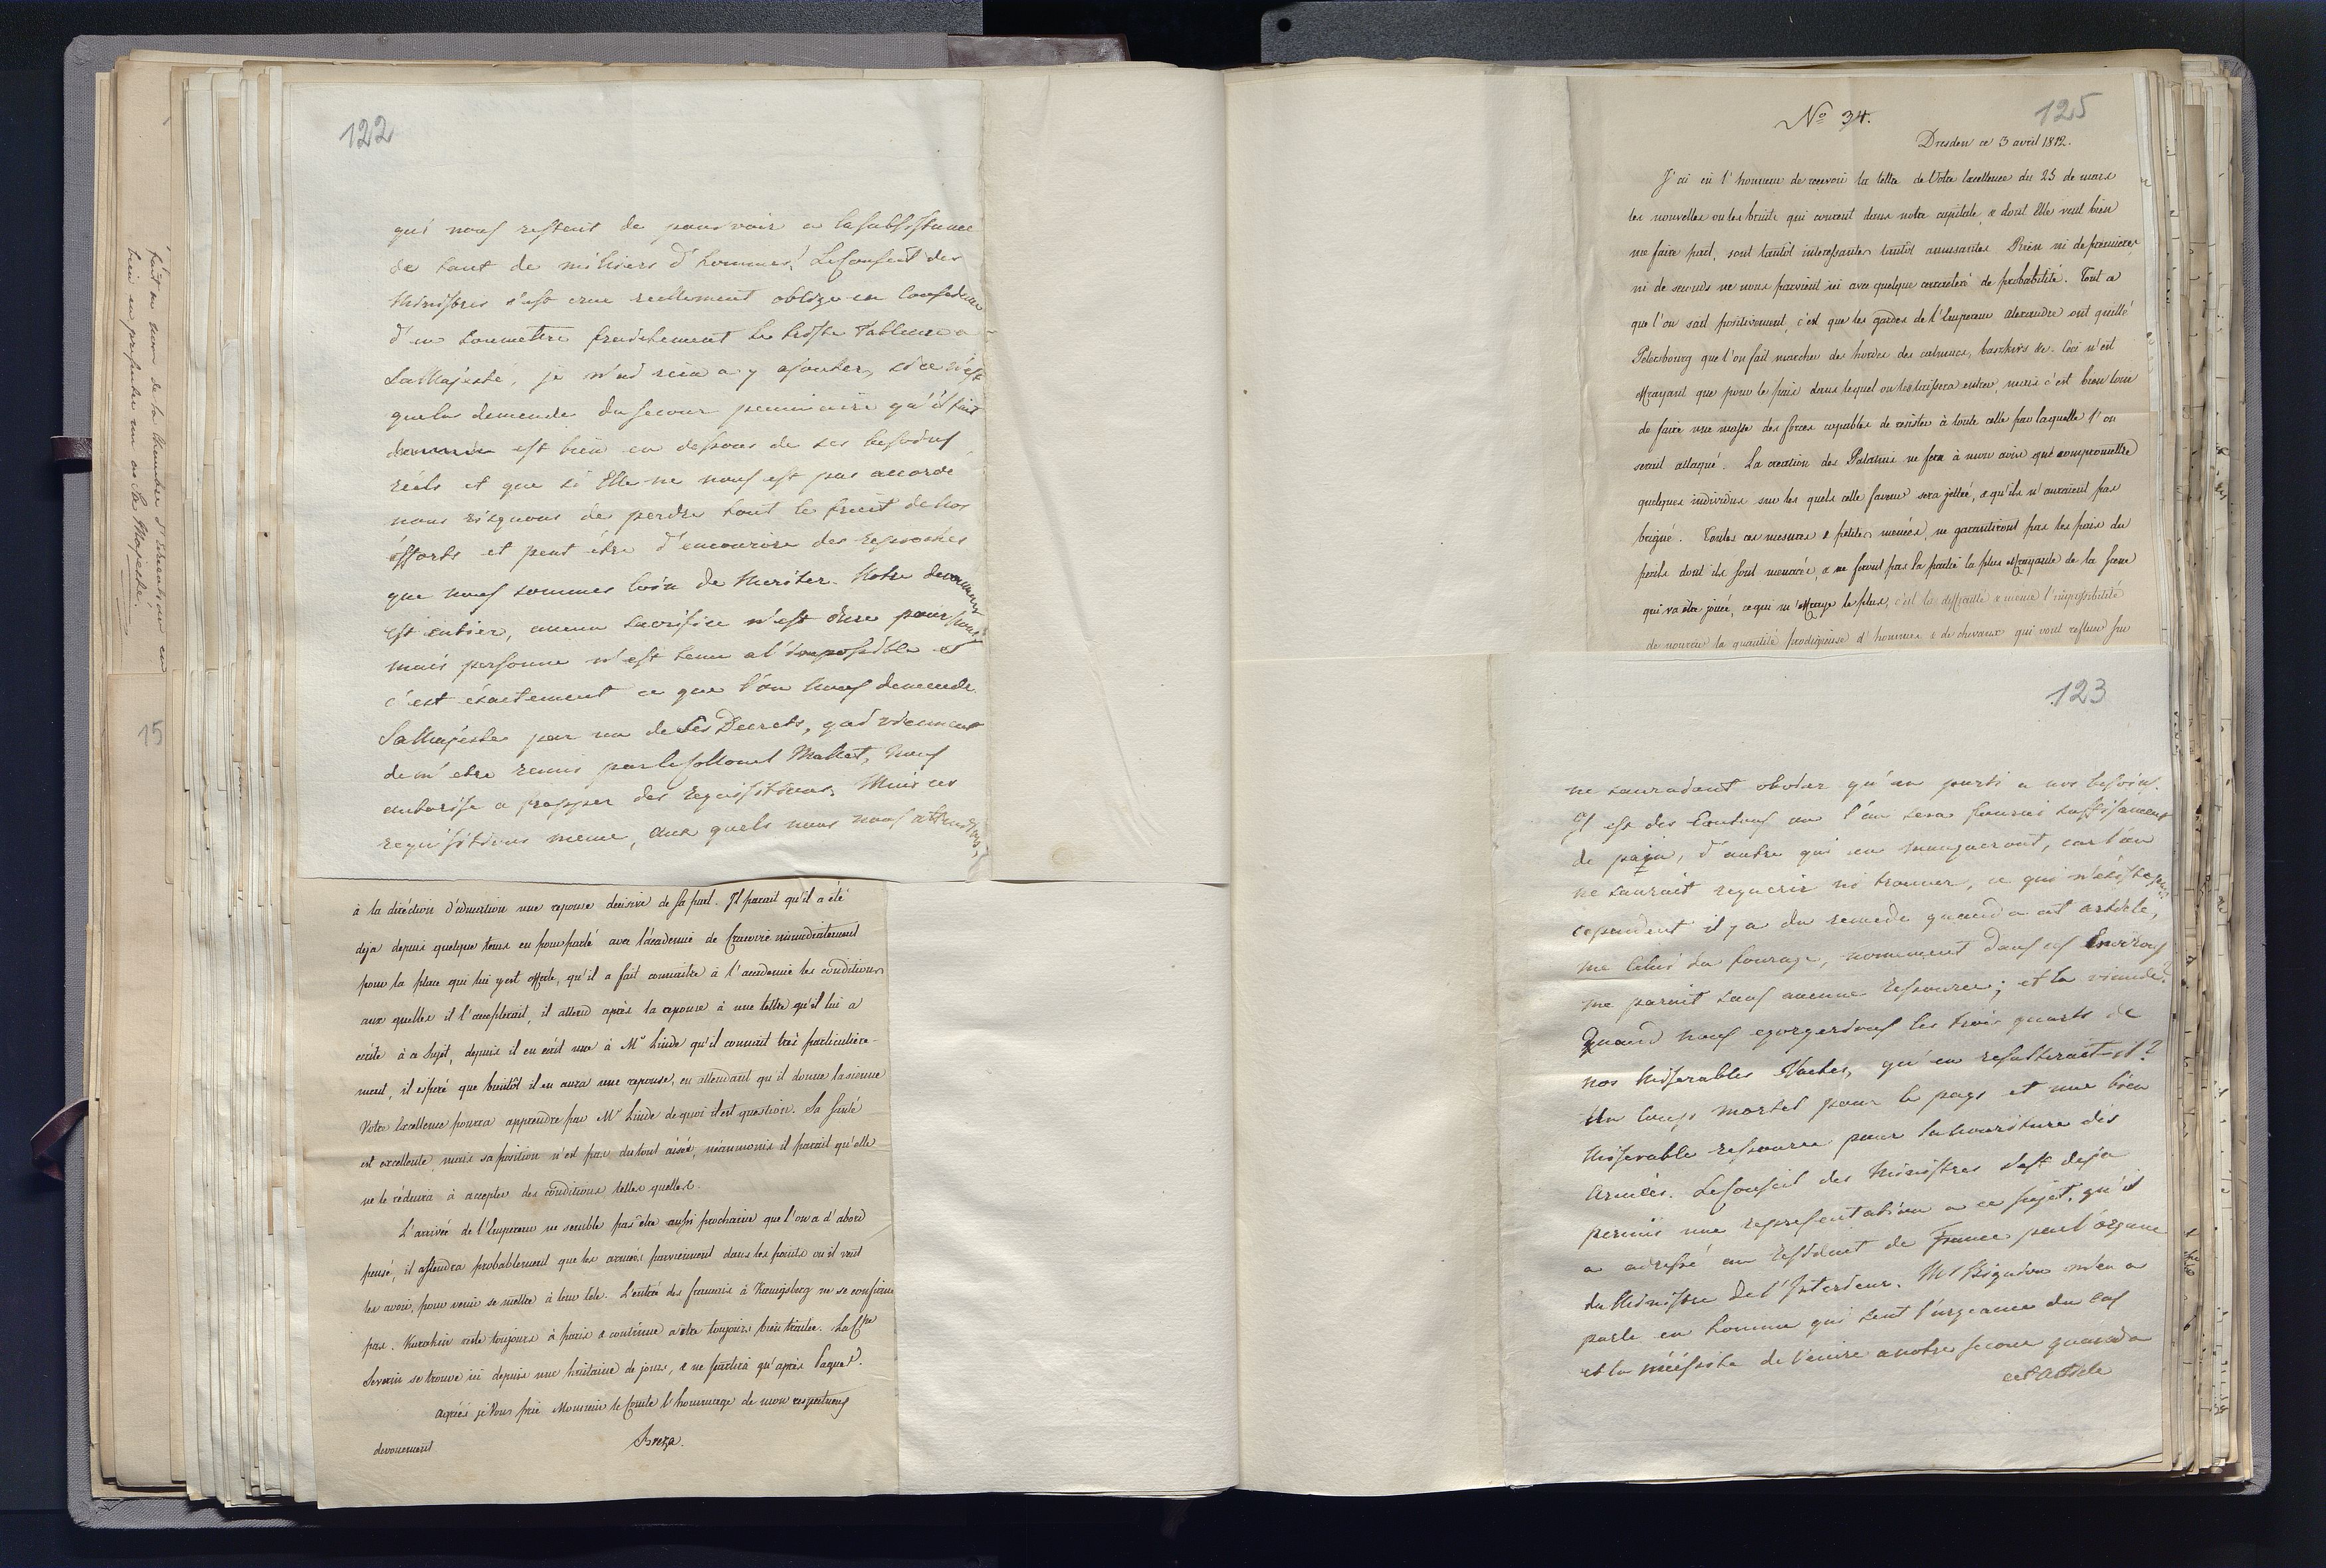 122
qui nous restent de pourvoir a la subsistance
de tant de milliers d'hommes! Le Conseil des
Ministres s'est crue reellement obligé en
d'en soumettre franchement le triste Tableau a
Sa Majesté, je n'ai rien a y ajouter, si ce n'est
que la demande du secour pecuniaire qu'il fait
est bien en dessous de ses besoins
réels et que si Elle ne nous est pas accordé
nous risquons de perdre tout le fruit de nos
éfforts et peut être d'encourire des reproches
que nous sommes loin de meriter. Notre devouement
est entier, aucun sacrifice n'est dure pour nous
mais personne n'est tenu a l'impossible et
c'est éxactement ce que l'on nous demende.
Sa Majesté par un de Ses Decrets, qui viennent
de m'etre remis par le Collonel Mallet, nous
autorise a frapper des requisitions. Mais ces
requisitions meme, aux quels nous nous attendions,
à la diréction d'éducation une reponse decisive de sa part. Il parait qu'il a été
deja depuis quelque tems en pourparlé avec l'academie de Cracovie immediatement
pour la place qui lui y est offerte, qu'il a fait connaitre à l'academie les conditions
aux quelles il l'accepterait, il attend après la reponse à une lettre qu'il lui a
ecrite à ce sujet, depuis il en ecrit une à Mr Linde qu'il connait très particulière-
ment, il espere que bientôt il en aura une reponse, en attendant qu'il donne la sienne
Votre Excellence pourra apprendre par Mr Linde de quoi il est question. Sa santé
est excellente, mais sa position n'est pas du tout aisée, néanmoins il parait qu'elle
ne le réduira à accepter des conditions telles quelles.
L'arrivée de l'Empereur ne semble pas être aussi prochaine que l'on a d'abord
pensé, il attendra probablement que les armées parviennent dans les points où il veut
les avoir, pour venir se mettre à leur tête. L'entrée des français à Kœnigsberg ne se confirme
pas. Kurakin reste toujours à Paris & continue a être toujours bien traitée. La Ctsse
Severin se trouve ici depuis une huitaine de jours, & ne partira qu'après Paques.
Agréés je Vous prie Monsieur le Comte l'hommage de mon respectueux
devouement
Breza.
fait au nom de la Chambre d'éducation, en
bien en presenter un a Sa Majesté.
15
No 34.
125
Dresden ce 3 avril 1812.
J'ai eu l'honneur de recevoir la lettre de Votre Excellence du 25 de mars
les nouvelles ou les bruits qui courent dans notre capitale, & dont Elle veut bien
me faire part, sont tantôt interessantes tantôt amusantes. Rien ni de premieres
ni de seconds ne nous parvient ici avec quelque caractéré de probabilité. Tout ce
que l'on sait positivement, c'est que les gardes de l'Empereur Alexandre ont quitté
Petersbourg que l'on fait marcher des hordes des calmucs, baszkirs &c. Ceci n'est
effrayant que pour le païs dans lequel on les laissera entrer, mais c'est bien loin
de faire une masse des forces capables de resister à toute celle par laquelle l'on
serait attaqué. La creation des Palatins ne fera à mon avis que compromettre
quelques individus sur les quels cette faveur sera jettée, & qu'ils n'auraient pas
brigué. Toutes ces mesures & petites menées, ne garantiront pas les païs du
perils dont ils sont menacés, & ne feront pas la partie la plus effrayante de la scene
qui va être jouée, ce qui m'effraye le plus, c'est la difficulté & meme l'impossibilité
de nourrir la quantité prodigieuse d'hommes & de chevaux qui vont refluer sur
123
ne sauroient obvier qu'en parti a nos besoins.
Il est des Cantons ou l'on sera fourni suffisament
de pain, d'autre qui en manqueront, car l'on
ne sauroit requerir ni trouver, ce qui n'éxiste pas;
cependent il y a du remede quand a cet article,
me celui du fourage, nomement dans ces Environs
me parait sans aucune ressource; et la viande?
Quand nous egorgerions les trois quarts de
nos miserables Vaches, qu'en resulterait-il?
Un coup mortel pour le pays et une bien
miserable ressource pour la nouriture des
Armées. Le Conseil des Ministres s'est deja
permis une representation a ce sujet, qu'il
a adressé au Resident de France par l'organe
du Ministre de l'Interieur. Mr Bignon m'en a
parlé en homme qui sent l'urgeance du cas
et la nécéssite de venire a notre secour quand a
cet article